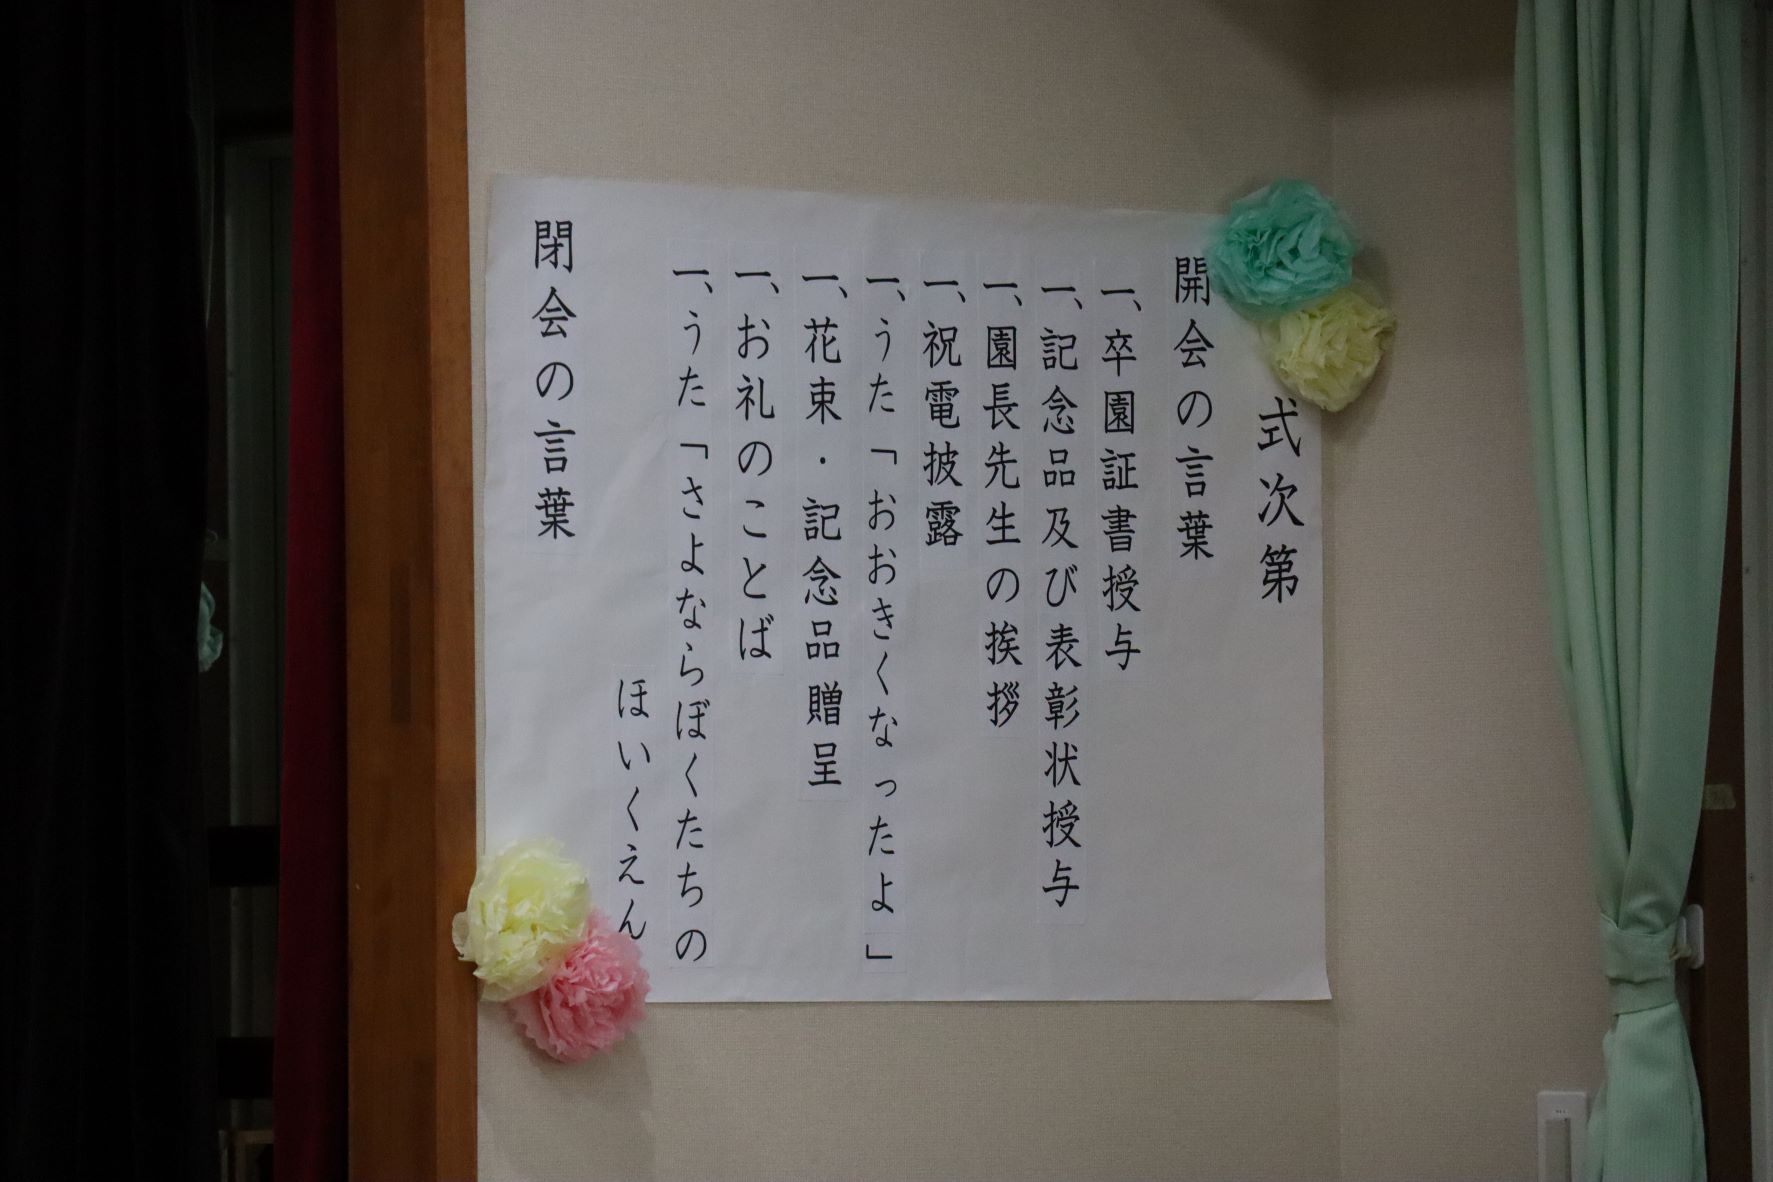 式次第
開会の言葉
一、卒園証書授与
一、記念品及び表彰状授与
一、園長先生の挨拶
一、祝電披露
一、うた「おおきくなったよ」
一、花束・記念品贈呈
一、お礼のことば
一、うた「さよならぼくたちの
ほいくえん
閉会の言葉